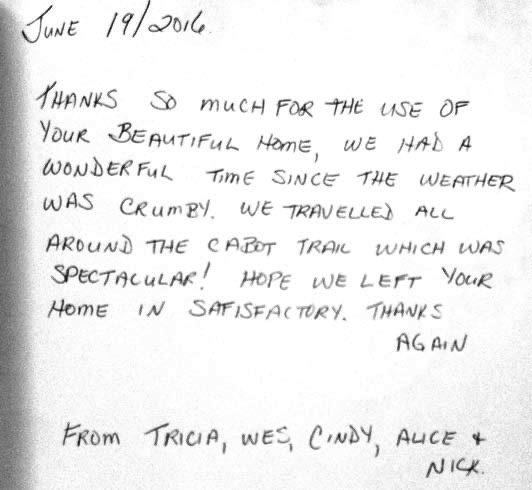 JUNE 19/2016.
THANKS SO MUCH FOR THE USE OF
YOUR BEAUTIFUL HOME, WE HAD A
WONDERFUL TIME SINCE THE WEATHER
WAS CRUMBY. WE TRAVELLED ALL
AROUND THE CABOT TRAIL WHICH WAS
SPECTACULAR! HOPE WE LEFT YOUR
HOME IN SATISFACTORY. THANKS
AGAIN
FROM TRICIA, WES, CINDY, ALICE +
NICK.